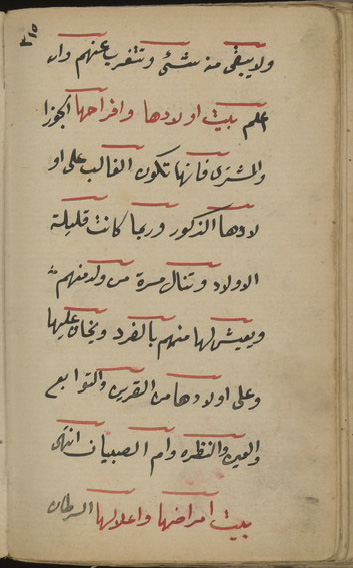 ٣١٥
ولا يبقى منه شئ وتتغرب عنهم وان
اعلم بيت اولادها وافراحها الجوزا
والمشترى فانها تكون الغالب على او
لادها الذكور وربما كانت قليلة
الاولاد وتنال مسرة من ولد منهم
ويعيش لها منهم بالفرد ويخاف عليها
وعلى اولادها من القرين والتوابع
والعين والنظره وام الصبيان انتهى
بيت امراضها واعلالها السرطان